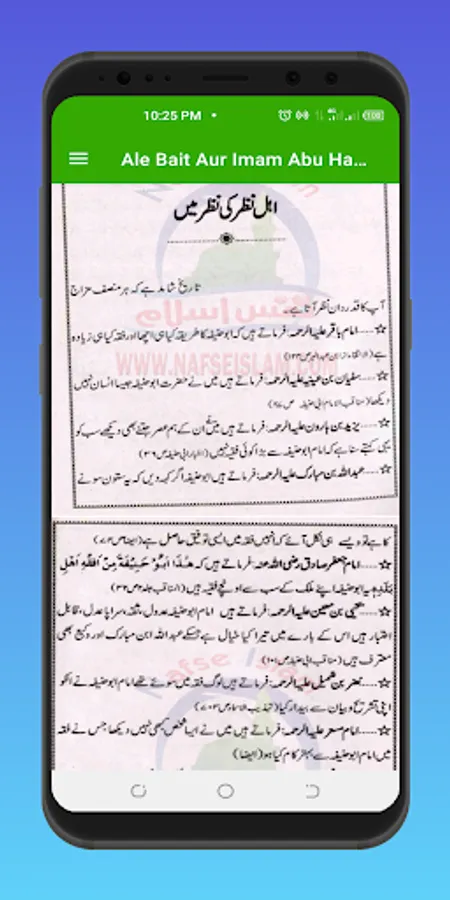 10:25 PM
Ale Bait Aur Imam Abu Ha...
اہل نظر کی نظر میں
تاریخ شاہد ہے کہ ہر منصف مزاج
آپ کا قدردان نظر آتا ہے۔
☆....امام باقر علیہ الرحمہ: فرماتے ہیں کہ ابوحنیفہ کا طریقہ کیا ہی اچھا اور فقہ کیا ہی زیادہ
ہے
WWW.NAFSEISLAM.COM
☆....سفیان بن عیینہ علیہ الرحمہ: فرماتے ہیں میں نے حضرت ابوحنیفہ جیسا انسان نہیں
دیکھا
☆....یزید بن ہارون علیہ الرحمہ: فرماتے ہیں میں ان کے ہم عصر جتنے بھی دیکھے سب کو
یہی کہتے سنا ہے کہ امام ابوحنیفہ سے بڑا کوئی فقیہ نہیں
☆....عبداللہ بن مبارک علیہ الرحمہ: فرماتے ہیں ابوحنیفہ اگر کہہ دیں کہ یہ ستون سونے
کا ہے تو ویسے ہی نکل آئے کہ انہیں فقہ میں ایسی توفیق حاصل ہے
☆....امام جعفر صادق رضی اللہ عنہ: فرماتے ہیں کہ هٰذَا اَبُوْ حَنِيْفَةَ مِنْ اَفْقَهِ اَهْلِ
بَلَدِهٖ یہ ابوحنیفہ اپنے ملک کے سب سے اونچے فقیہ ہیں
☆....یحییٰ بن معین علیہ الرحمہ: فرماتے ہیں امام ابوحنیفہ عدول، ثقہ، سراپا عدل، قابل
اعتبار ہیں اس کے بارے میں تیرا کیا خیال ہے جسکے عبداللہ ابن مبارک اور وکیع بھی
معترف ہیں
Nafse Islam
☆....نضر بن شمیل علیہ الرحمہ: فرماتے ہیں لوگ فقہ میں سوئے تھے امام ابوحنیفہ نے انکو
اپنی تشریح و بیان سے بیدار کیا
☆....امام مسعر علیہ الرحمہ: فرماتے ہیں میں نے ایسا شخص کبھی نہیں دیکھا جس نے فقہ
میں امام ابوحنیفہ سے بہتر کام کیا ہو (ایضا)